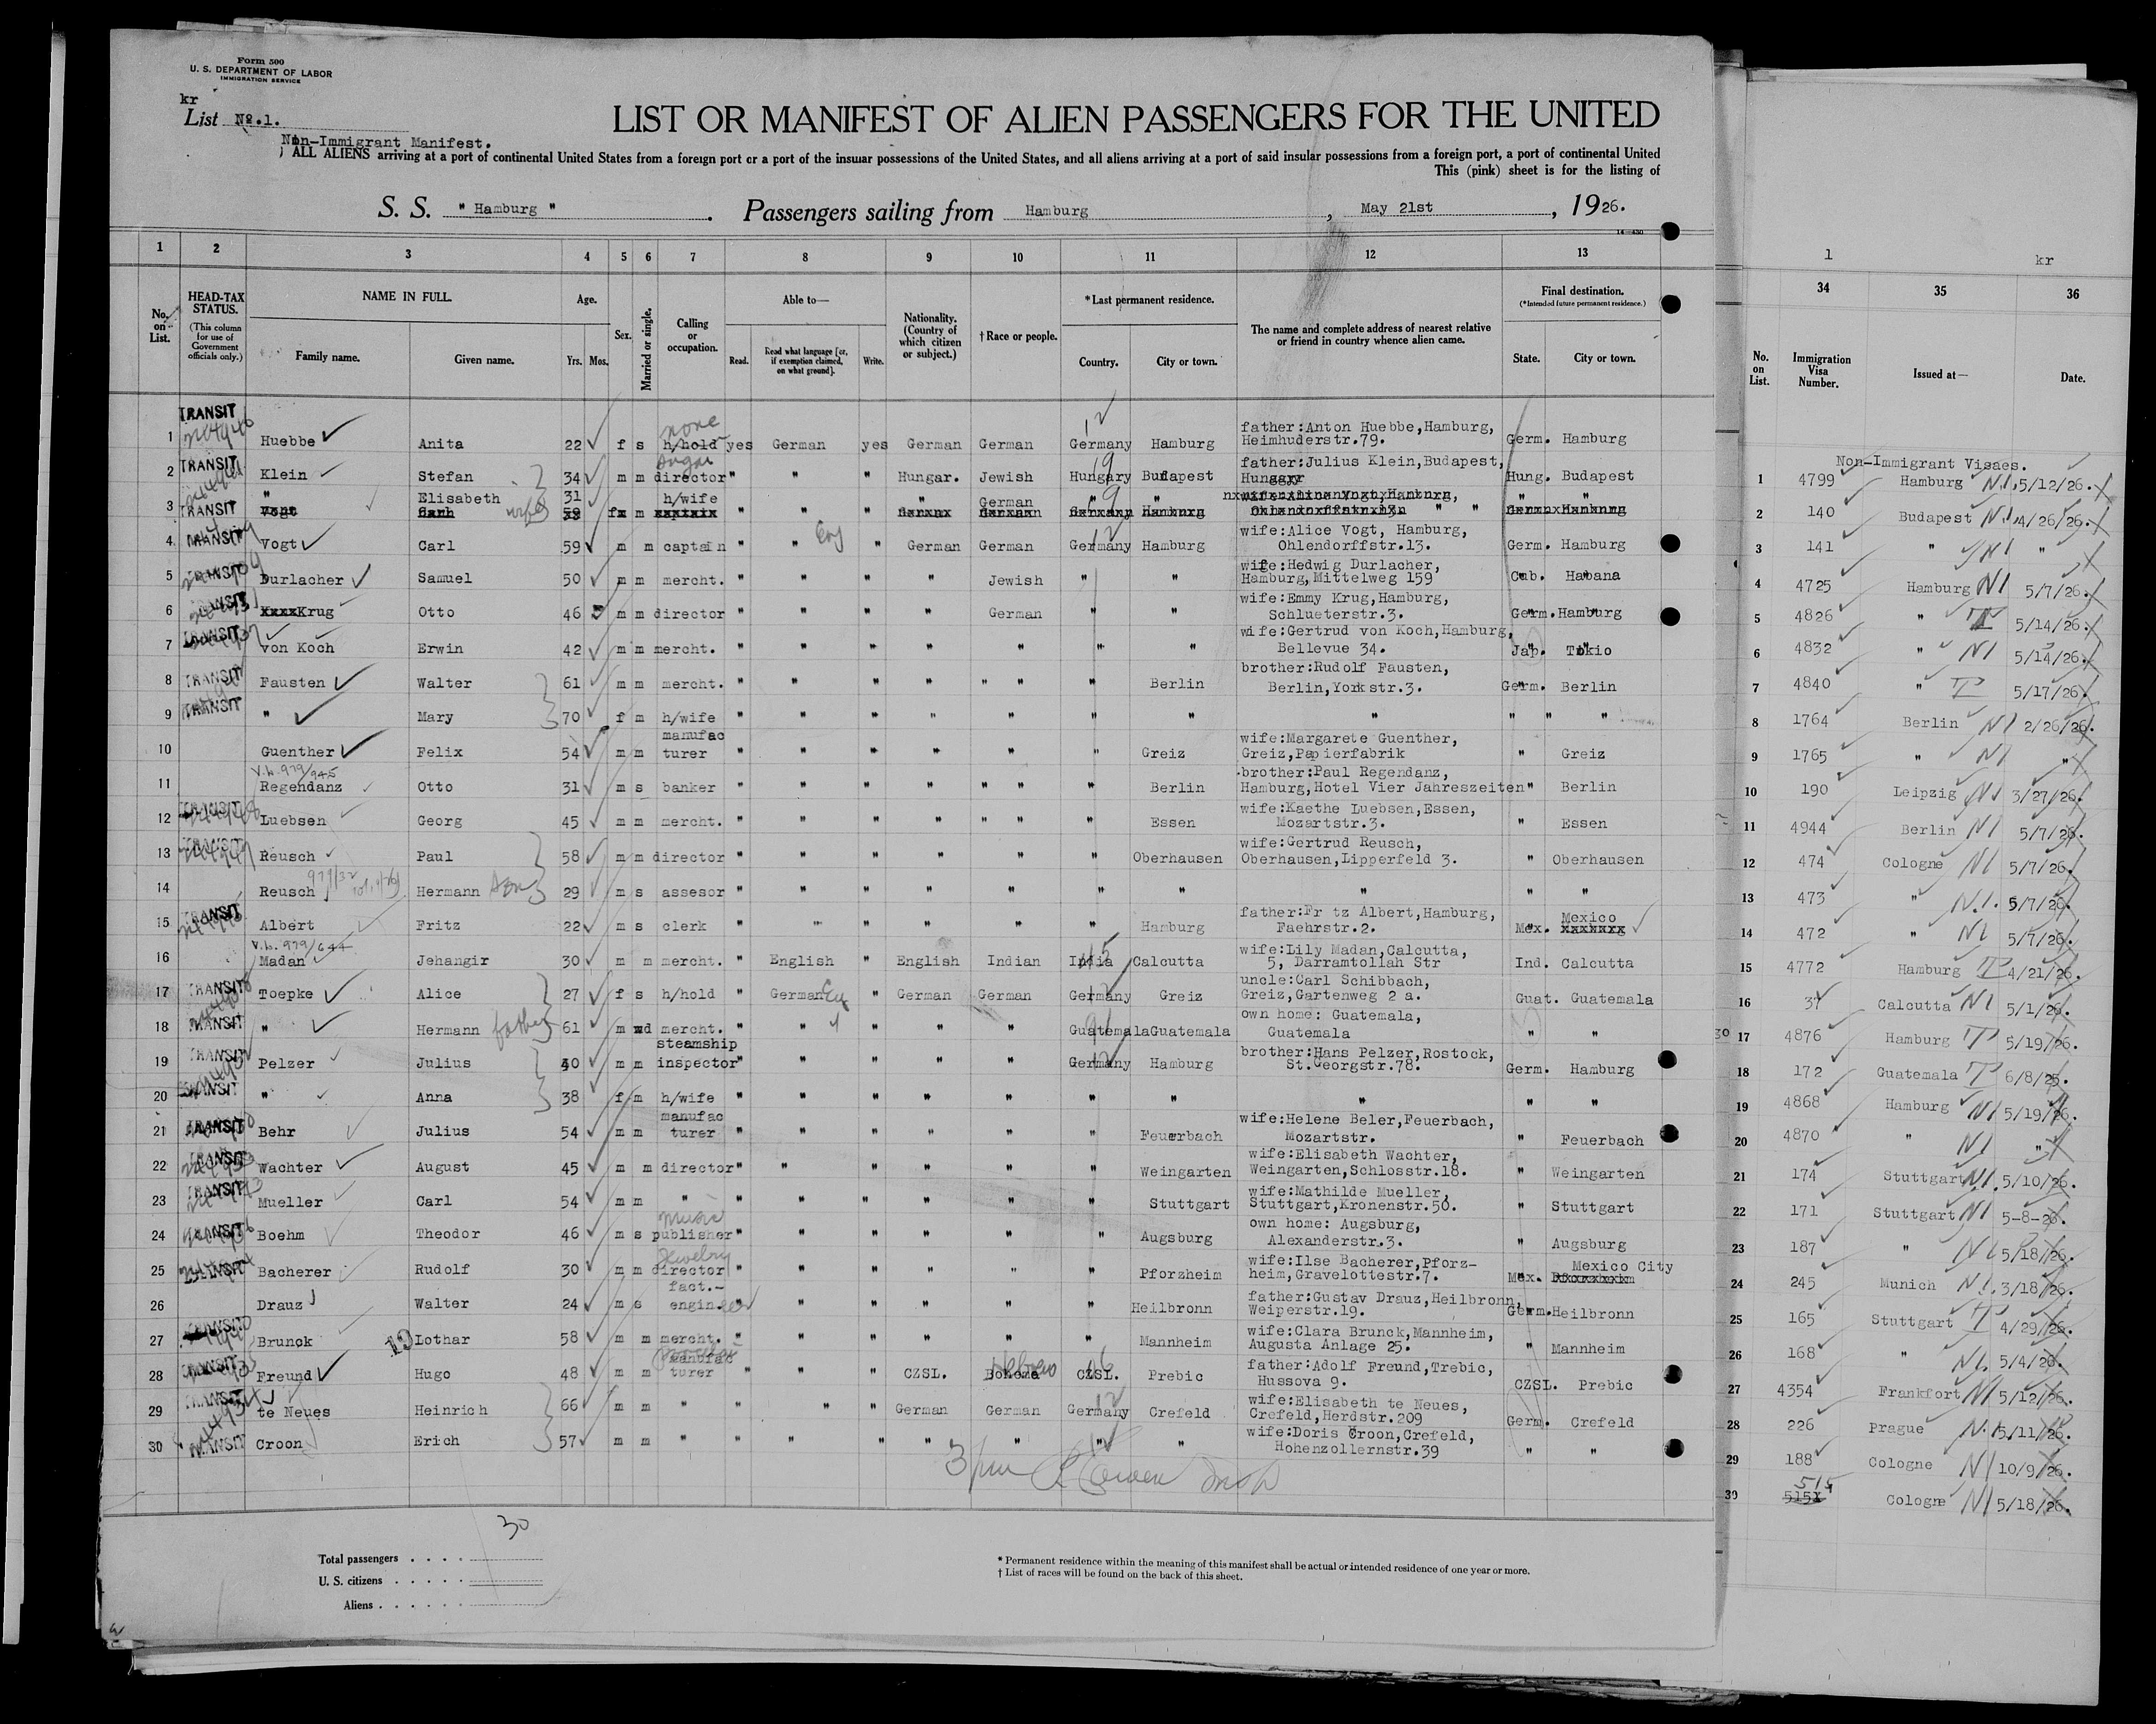 Form 500
U. S. DEPARTMENT OF LABOR
IMMIGRATION SERVICE
kr
List No.1.
LIST OR MANIFEST OF ALIEN PASSENGERS FOR THE UNITED
Non-Immigrant Manifest.
ALL ALIENS arriving at a port of continental United States from a foreign port or a port of the insuar possessions of the United States, and all aliens arriving at a port of said insular possessions from a foreign port, a port of continental United
This (pink) sheet is for the listing of
S. S. " Hamburg " . Passengers sailing from Hamburg , May 21st , 1926.
14—430
1 2 3 4 5 6 7 8 9 10 11 12 13
No. on List. HEAD-TAX STATUS. (This column for use of Government officials only.) NAME IN FULL. Family name. Given name. Age. Yrs. Mos. Sex. Married or single. Calling or occupation. Able to— Read. Read what language [or, if exemption claimed, on what ground]. Write. Nationality. (Country of which citizen or subject.) † Race or people. * Last permanent residence. Country. City or town. The name and complete address of nearest relative or friend in country whence alien came. Final destination. (*Intended future permanent residence.) State. City or town.
1 TRANSIT Huebbe Anita 22 f s h/hold none yes German yes German German Germany Hamburg father:Anton Huebbe,Hamburg, Heimhuderstr.79. Germ. Hamburg
2 TRANSIT Klein Stefan 34 m m director Sugar " " " Hungar. Jewish Hungary Budapest father:Julius Klein,Budapest, Hungary Hung. Budapest
" Elisabeth wife 31 h/wife " German " " " "
3 TRANSIT
4 TRANSIT Vogt Carl 59 m m captain " " Eng " German German Germany Hamburg wife:Alice Vogt, Hamburg, Ohlendorffstr.13. Germ. Hamburg
5 TRANSIT Durlacher Samuel 50 m m mercht. " " " " Jewish " " wife:Hedwig Durlacher, Hamburg,Mittelweg 159 Cub. Habana
6 TRANSIT Krug Otto 46 m m director " " " " German " " wife:Emmy Krug,Hamburg, Schlueterstr.3. Germ. Hamburg
7 TRANSIT von Koch Erwin 42 m m mercht. " " " " " " " wife:Gertrud von Koch,Hamburg, Bellevue 34. Jap. Tokio
8 TRANSIT Fausten Walter 61 m m mercht. " " " " " " " Berlin brother:Rudolf Fausten, Berlin,Yorkstr.3. Germ. Berlin
9 TRANSIT " Mary 70 f m h/wife " " " " " " " " " " "
10 Guenther Felix 54 m m manufac turer " " " " " " Greiz wife:Margarete Guenther, Greiz,Papierfabrik " Greiz
11 V.L. 979/945 Regendanz Otto 31 m s banker " " " " " " " Berlin brother:Paul Regendanz, Hamburg,Hotel Vier Jahreszeiten " Berlin
12 TRANSIT Luebsen Georg 45 m m mercht. " " " " " " " Essen wife:Kaethe Luebsen,Essen, Mozartstr.3. " Essen
13 TRANSIT Reusch Paul 58 m m director " " " " " " Oberhausen wife:Gertrud Reusch, Oberhausen,Lipperfeld 3. " Oberhausen
14 Reusch Hermann Son 29 m s assesor " " " " " " " " " "
15 TRANSIT Albert Fritz 22 m s clerk " " " " " " Hamburg father:Fr tz Albert,Hamburg, Faehrstr.2. Mex. Mexico
16 V.L. 979/644 Madan Jehangir 30 m m mercht. " English " English Indian India Calcutta wife:Lily Madan,Calcutta, 5, Darramtollah Str Ind. Calcutta
17 TRANSIT Toepke Alice 27 f s h/hold " German Eng " German German Germany Greiz uncle:Carl Schibbach, Greiz,Gartenweg 2 a. Guat. Guatemala
18 TRANSIT " Hermann father 61 m wd mercht. " " " " " Guatemala Guatemala own home: Guatemala, Guatemala " "
19 TRANSIT Pelzer Julius 40 m m steamship inspector " " " " " Germany Hamburg brother:Hans Pelzer,Rostock, St.Georgstr.78. Germ. Hamburg
20 TRANSIT " Anna 38 f m h/wife " " " " " " " " " "
21 TRANSIT Behr Julius 54 m m manufac turer " " " " " " Feuerbach wife:Helene Beler,Feuerbach, Mozartstr. " Feuerbach
22 TRANSIT Wachter August 45 m m director " " " " " " Weingarten wife:Elisabeth Wachter, Weingarten,Schlosstr.18. " Weingarten
23 TRANSIT Mueller Carl 54 m m " " " " " " " Stuttgart wife:Mathilde Mueller, Stuttgart,Kronenstr.50. " Stuttgart
24 TRANSIT Boehm Theodor 46 m s music publisher " " " " " " Augsburg own home: Augsburg, Alexanderstr.3. " Augsburg
25 TRANSIT Bacherer Rudolf 30 m m Jewelry director " " " " " " Pforzheim wife:Ilse Bacherer,Pforz- heim,Gravelottestr.7. Mex. Mexico City
26 Drauz Walter 24 m s fact.- engin. " " " " " " Heilbronn father:Gustav Drauz,Heilbronn, Weiperstr.19. Germ. Heilbronn
27 TRANSIT Brunck 19 Lothar 58 m m mercht. " " " " " " Mannheim wife:Clara Brunck,Mannheim, Augusta Anlage 25. " Mannheim
28 TRANSIT Freund Hugo 48 m m manufac turer " " " CZSL. Bohema Hebrew CZSL. Prebic father:Adolf Freund,Trebic, Hussova 9. CZSL. Prebic
29 TRANSIT te Neues Heinrich 66 m m " " " " German German Germany Crefeld wife:Elisabeth te Neues, Crefeld,Herdstr.209 Germ. Crefeld
30 TRANSIT Croon Erich 57 m m " " " " " " " " wife:Doris Croon,Crefeld, Hohenzollernstr.39 " "
30
Total passengers . . . .
U. S. citizens . . . . .
Aliens . . . . . .
* Permanent residence within the meaning of this manifest shall be actual or intended residence of one year or more.
† List of races will be found on the back of this sheet.
1 kr
34 35 36
No. on List. Immigration Visa Number. Issued at— Date.
Non-Immigrant Visaes.
1 4799 Hamburg N.I. 5/12/26.
2 140 Budapest N.I. 4/26/26.
3 141 " NI "
4 4725 Hamburg NI 5/7/26.
5 4826 " T 5/14/26.
6 4832 " NI 5/14/26.
7 4840 " T 5/17/26.
8 1764 Berlin NI 2/26/26.
9 1765 " NI "
10 190 Leipzig NI 3/27/26.
11 4944 Berlin NI 5/7/26.
12 474 Cologne NI 5/7/26.
13 473 " N.I. 5/7/26.
14 472 " NI 5/7/26.
15 4772 Hamburg T 4/21/26.
16 37 Calcutta NI 5/1/26.
17 4876 Hamburg T 5/19/26.
18 172 Guatemala T 6/8/25.
19 4868 Hamburg NI 5/19/26.
20 4870 " NI "
21 174 Stuttgart NI. 5/10/26.
22 171 Stuttgart NI 5-8-26.
23 187 " NI 5/18/26.
24 245 Munich N.I. 3/18/26.
25 165 Stuttgart T 4/29/26.
26 168 " NI. 5/4/26.
27 4354 Frankfort NI 5/12/26.
28 226 Prague N.I. 5/11/26.
29 188 Cologne NI 10/9/26.
30 515 Cologne NI 5/18/26.